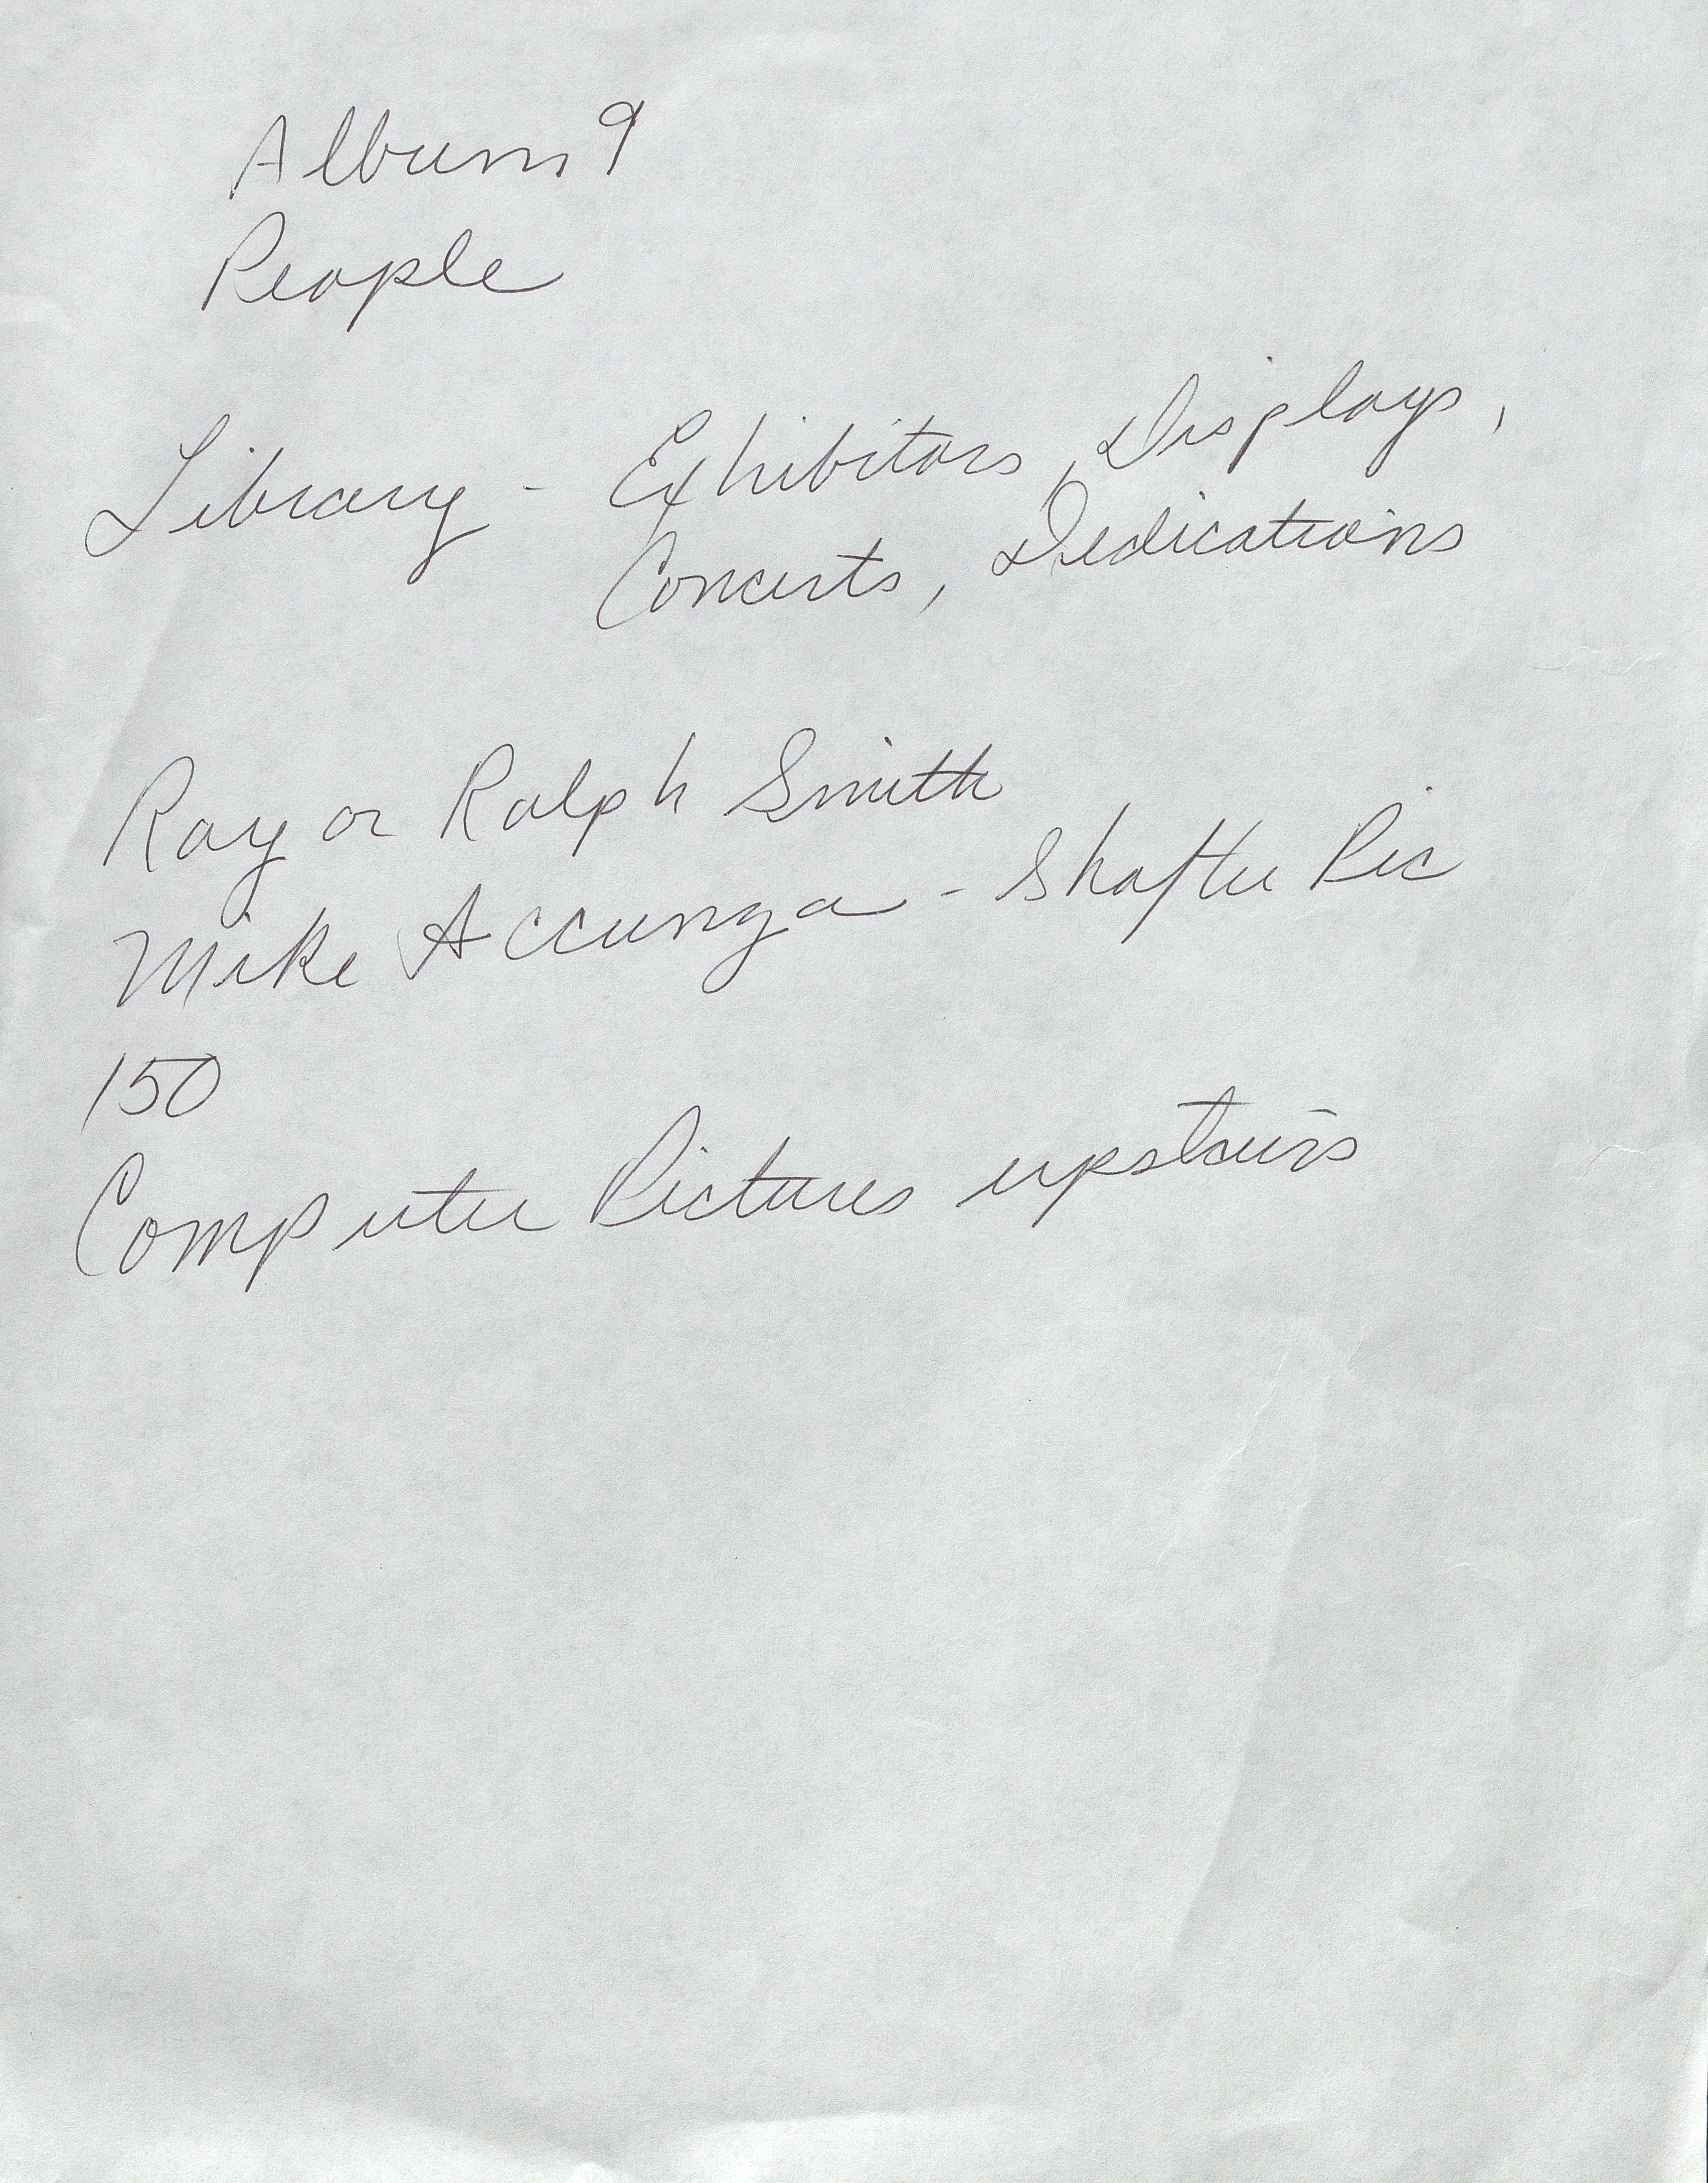 Album 9
People
Library - Exhibitors, Displays,
Concerts, Dedications
Ray or Ralph Smith
Mike Accunza - Shafter Pic
150
Computer Pictures upstairs